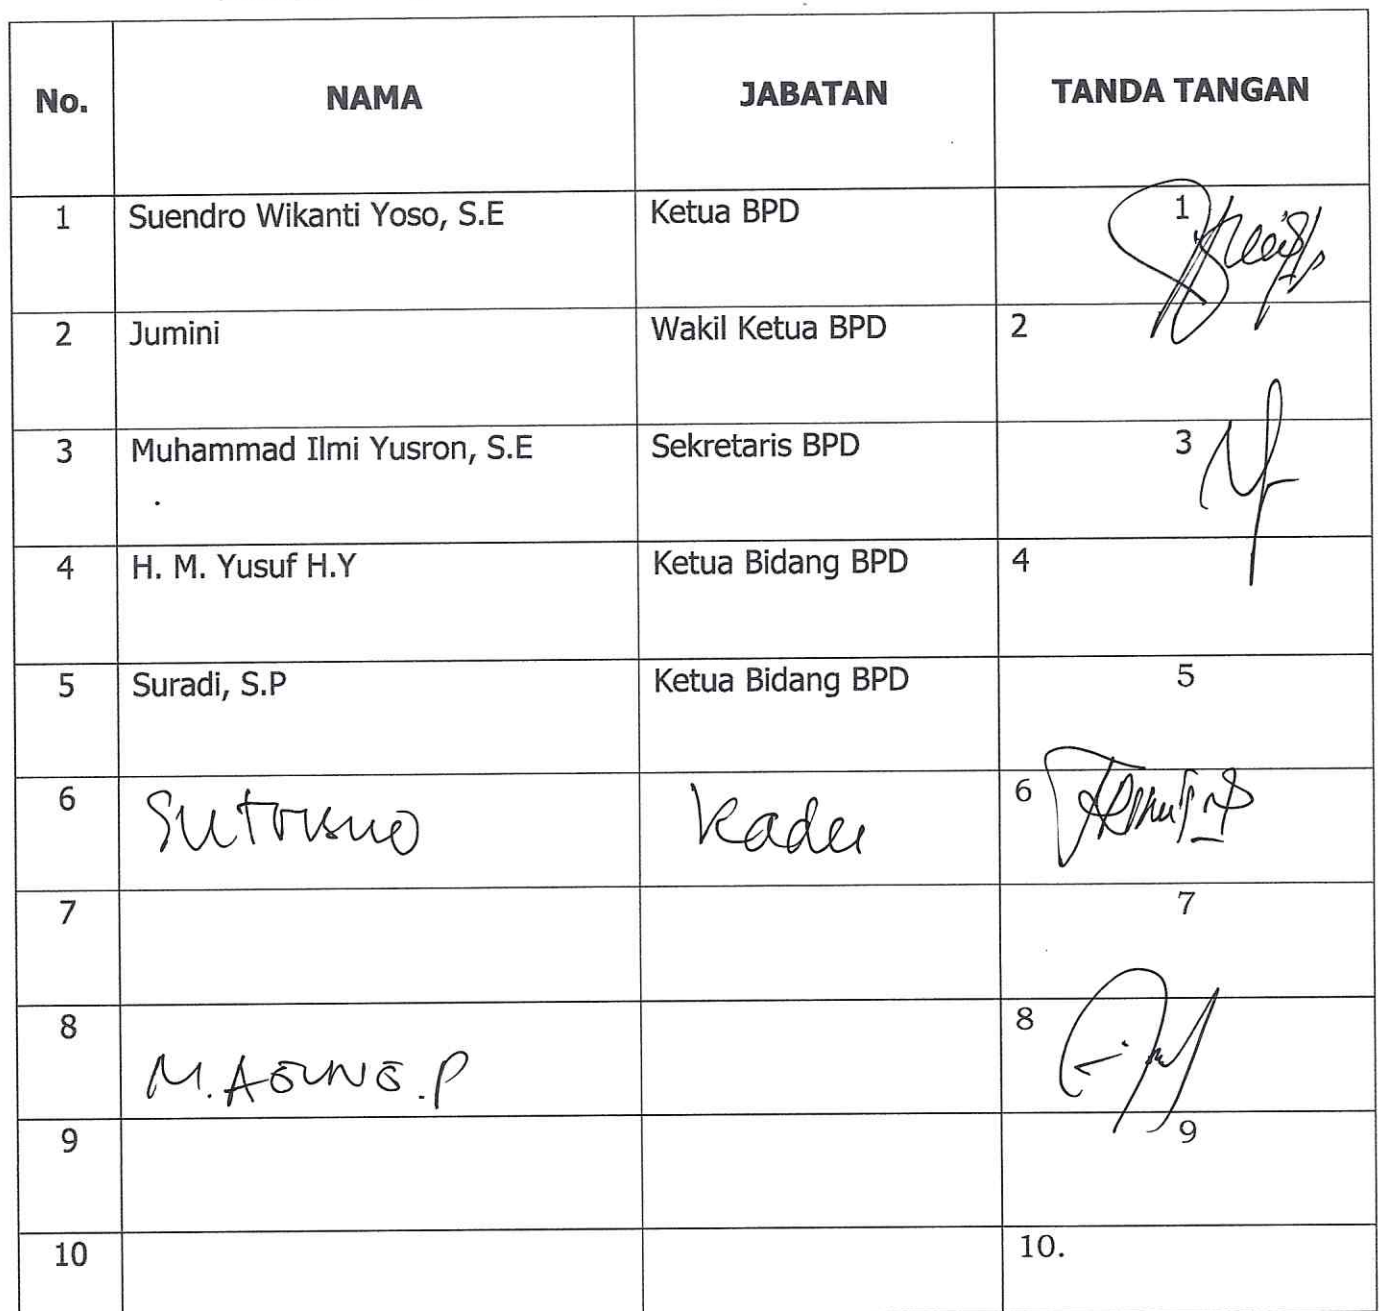 No. NAMA JABATAN TANDA TANGAN
1 Suendro Wikanti Yoso, S.E Ketua BPD 1
2 Jumini Wakil Ketua BPD 2
3 Muhammad Ilmi Yusron, S.E Sekretaris BPD 3
4 H. M. Yusuf H.Y Ketua Bidang BPD 4
5 Suradi, S.P Ketua Bidang BPD 5
6 Sutrisno Kades 6
7 7
8 M. AGUNG. P 8
9 9
10 10.